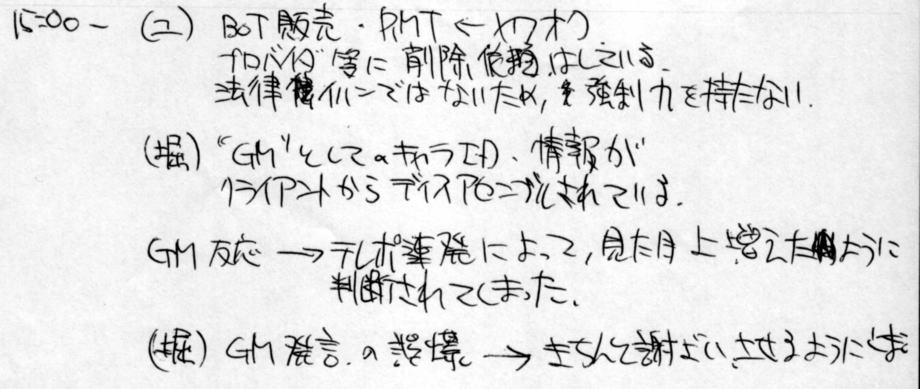 15:00～ (ユ) BOT販売・RMT ← ヤフオク
プロバイダ等に削除依頼はしている。
法律違反ではないため、強制力を持たない。
(堀) "GM"としてのキャラID、情報が
クライアントからディスアセンブルされている。
GM反応 → テレポ連発によって、見た目上増えたように
判断されてしまった。
(堀) GM発言の誤爆 → きちんと謝ざいさせるように